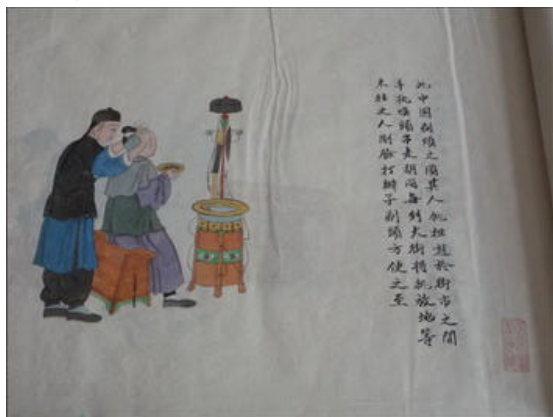 此中国剃頭之圖其人挑担遊於街市之間
手执唤頭串走胡同每到大街将挑放地等
来往之人剃臉打辮子剃頭方便之至